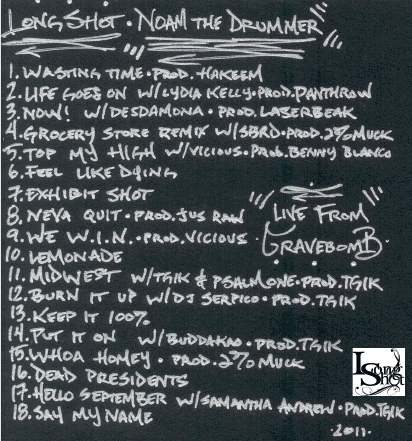 LONG SHOT · NOAM THE DRUMMER
1. WASTING TIME · PROD. HAKEEM
2. LIFE GOES ON W/ LYDIA KELLY · PROD. PANTHROW
3. NOW! W/ DESDAMONA · PROD. LASERBEAK
4. GROCERY STORE REMIX W/ SBRD · PROD. 2% MUCK
5. TOP MY HIGH W/ VICIOUS · PROD. BENNY BLANCO
6. FEEL LIKE DYING
7. EXHIBIT SHOT
8. NEVA QUIT · PROD. JUS RAW
9. WE W.I.N. · PROD. VICIOUS
10. LEMONADE
11. MIDWEST W/ TGIK & PSALM ONE · PROD. TGIK
12. BURN IT UP W/ DJ SERPICO · PROD. TGIK
13. KEEP IT 100%
14. PUT IT ON W/ BUDDAKAO · PROD. TGIK
15. WHOA HOMEY · PROD. 2% MUCK
16. DEAD PRESIDENTS
17. HELLO SEPTEMBER W/ SAMANTHA ANDREW · PROD. TGIK
18. SAY MY NAME
LIVE FROM
GRAVEBOMB
Long
Shot
· 2011 ·